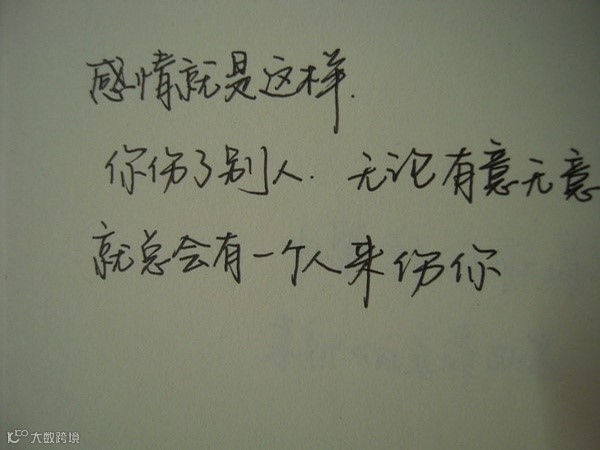 感情就是这样.
你伤了别人. 无论有意无意
就总会有一个人来伤你
大数跨境